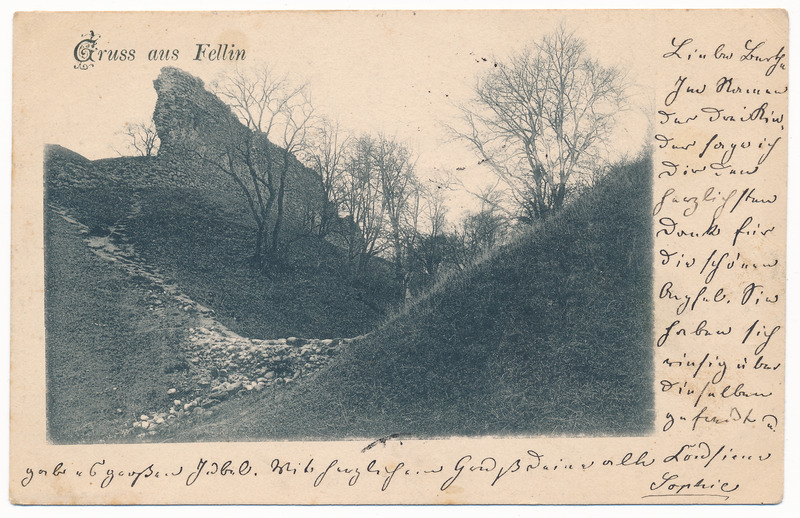 Gruss aus Fellin
Liebe
Im Namen
der drei Kin-
der sage ich
Dir den
herzlichsten
Dank für
die schönen
Aepfel. Sie
haben sich
riesig über
dieselben
gefreut u.
gab es großen Jubel. Mit herzlichem Gruß Deine alte Cousine
Sophie